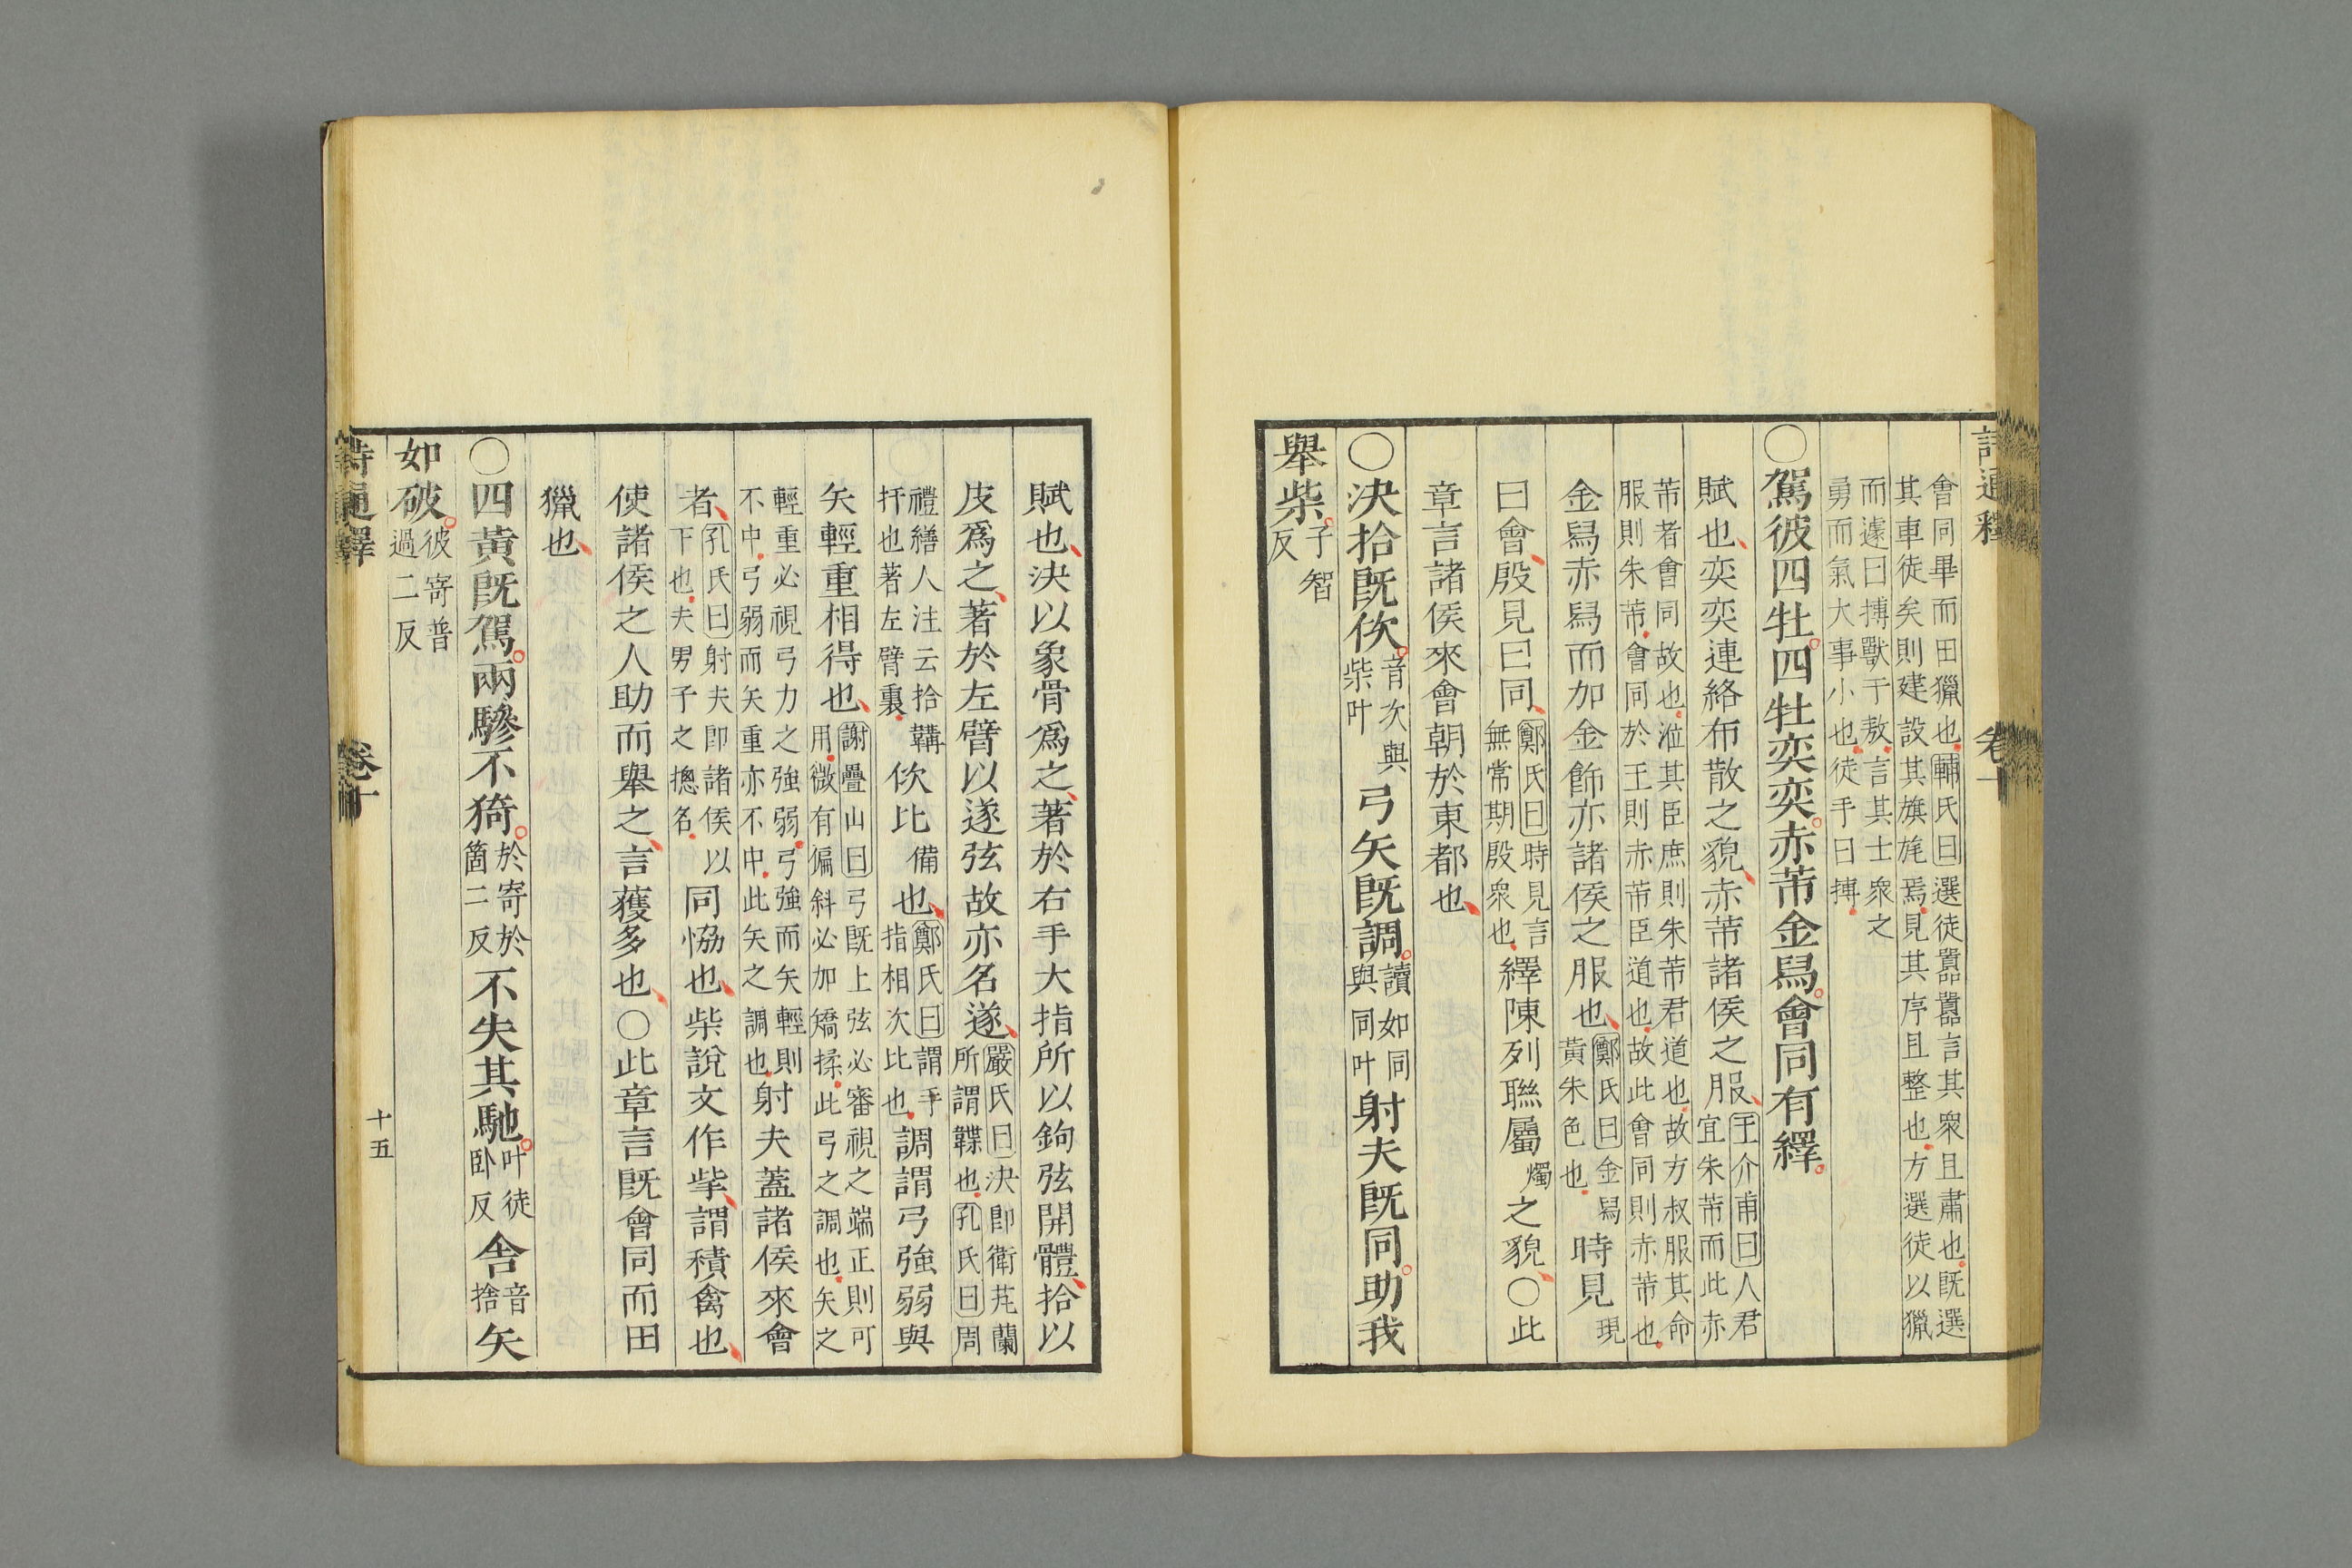 詩通釋　卷十
會同畢而田獵也輔氏曰選徒囂囂言其衆且肅也既選
其車徒矣則建設其旗旄焉見其序且整也方選徒以獵
而遽曰搏獸于敖言其士衆之
勇而氣大事小也徒手曰搏
○駕彼四牡四牡奕奕赤芾金舄會同有繹
賦也奕奕連絡布散之貌赤芾諸侯之服
王介甫曰人君
宜朱芾而此赤
芾者會同故也涖其臣庶則朱芾君道也故方叔服其命
服則朱芾會同於王則赤芾臣道也故此會同則赤芾也
金舄赤舄而加金飾亦諸侯之服也
鄭氏曰金舄
黃朱色也
時見
現
曰會殷見曰同
鄭氏曰時見言
無常期殷衆也
繹陳列聯屬
燭
之貌○此
章言諸侯來會朝於東都也
○決拾既佽
音次與
柴叶
弓矢既調
讀如同
與同叶
射夫既同助我
舉柴
子智
反
賦也決以象骨爲之著於右手大指所以鉤弦開體拾以
皮爲之著於左臂以遂弦故亦名遂
嚴氏曰決卽衛芄蘭
所謂韘也孔氏曰周
禮繕人注云拾韝
扞也著左臂裏
佽比
備
也
鄭氏曰謂手
指相次比也
調謂弓強弱與
矢輕重相得也
謝疊山曰弓既上弦必審視之端正則可
用微有偏斜必加矯揉此弓之調也矢之
輕重必視弓力之強弱弓強而矢輕則
不中弓弱而矢重亦不中此矢之調也
射夫蓋諸侯來會
者
孔氏曰射夫卽諸侯以
下也夫男子之摠名
同恊也柴說文作㧘謂積禽也
使諸侯之人助而舉之言獲多也○此章言既會同而田
獵也
○四黃既駕兩驂不猗
於寄於
箇二反
不失其馳
叶徒
卧反
舍
音
捨
矢
如破
彼寄普
過二反
詩通釋　卷十　十五